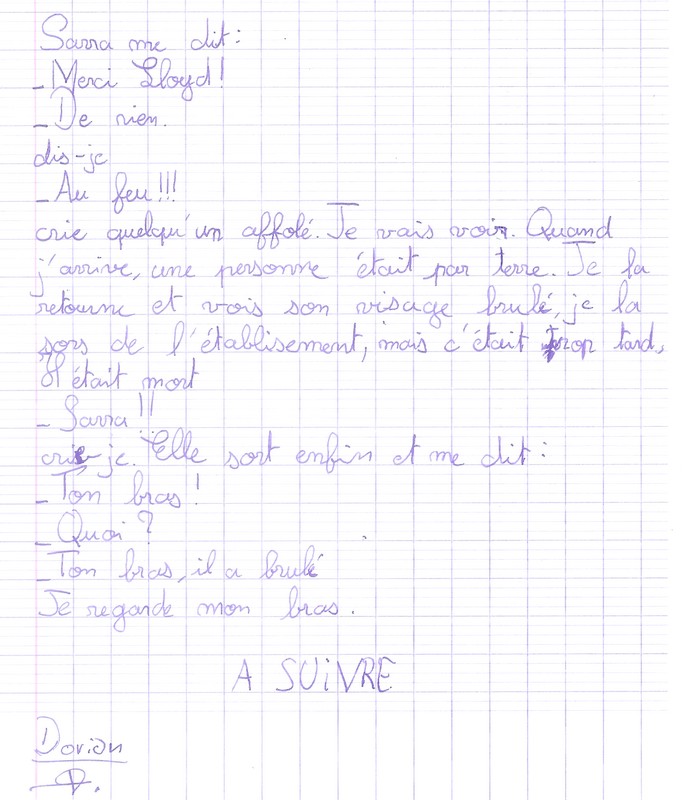 Sarra me dit :
_ Merci Lloyd !
_ De rien.
dis-je
_ Au feu !!!
crie quelqu'un affolé. Je vais voir. Quand
j'arrive, une personne était par terre. Je la
retourne et vois son visage brulé, je la
sors de l'établisement, mais c'était trop tard,
Il était mort
_ Sarra !!
crie-je. Elle sort enfin et me dit :
_ Ton bras !
_ Quoi ?
_ Ton bras, il a brulé
Je regarde mon bras.
A SUiVRE
Dorian
D.